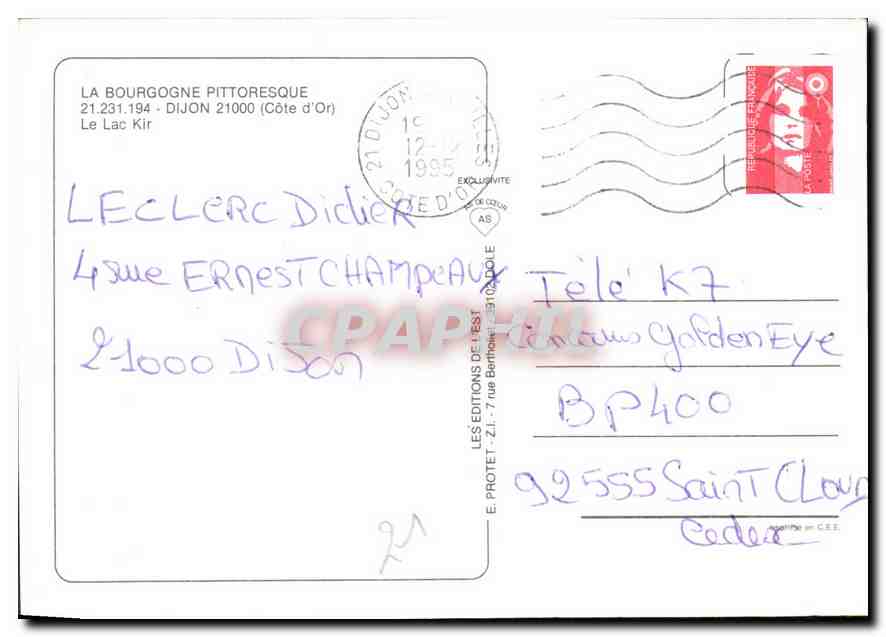 LA BOURGOGNE PITTORESQUE
21.231.194 - DIJON 21000 (Côte d'Or)
Le Lac Kir
21 DIJON
19
12-
1995
COTE D'OR
RÉPUBLIQUE FRANÇAISE
LA POSTE
EXCLUSIVITE
AS DE CŒUR
AS
LECLERC Didier
4 rue ERNEST CHAMPEAUX
21000 DIJON
LES ÉDITIONS DE L'EST
E. PROTET - Z.I. - 7 rue Berthollet - 39102 DOLE
CPAPHIL
Télé K7
Concours GoldenEye
BP400
92555 Saint CLoud
Cedex
en C.E.E.
21